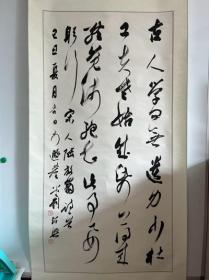 古人学问無遗力少壮
工夫老始成纸上得来
终觉浅绝知此事要
躬行 宋人陆放翁诗
夏月